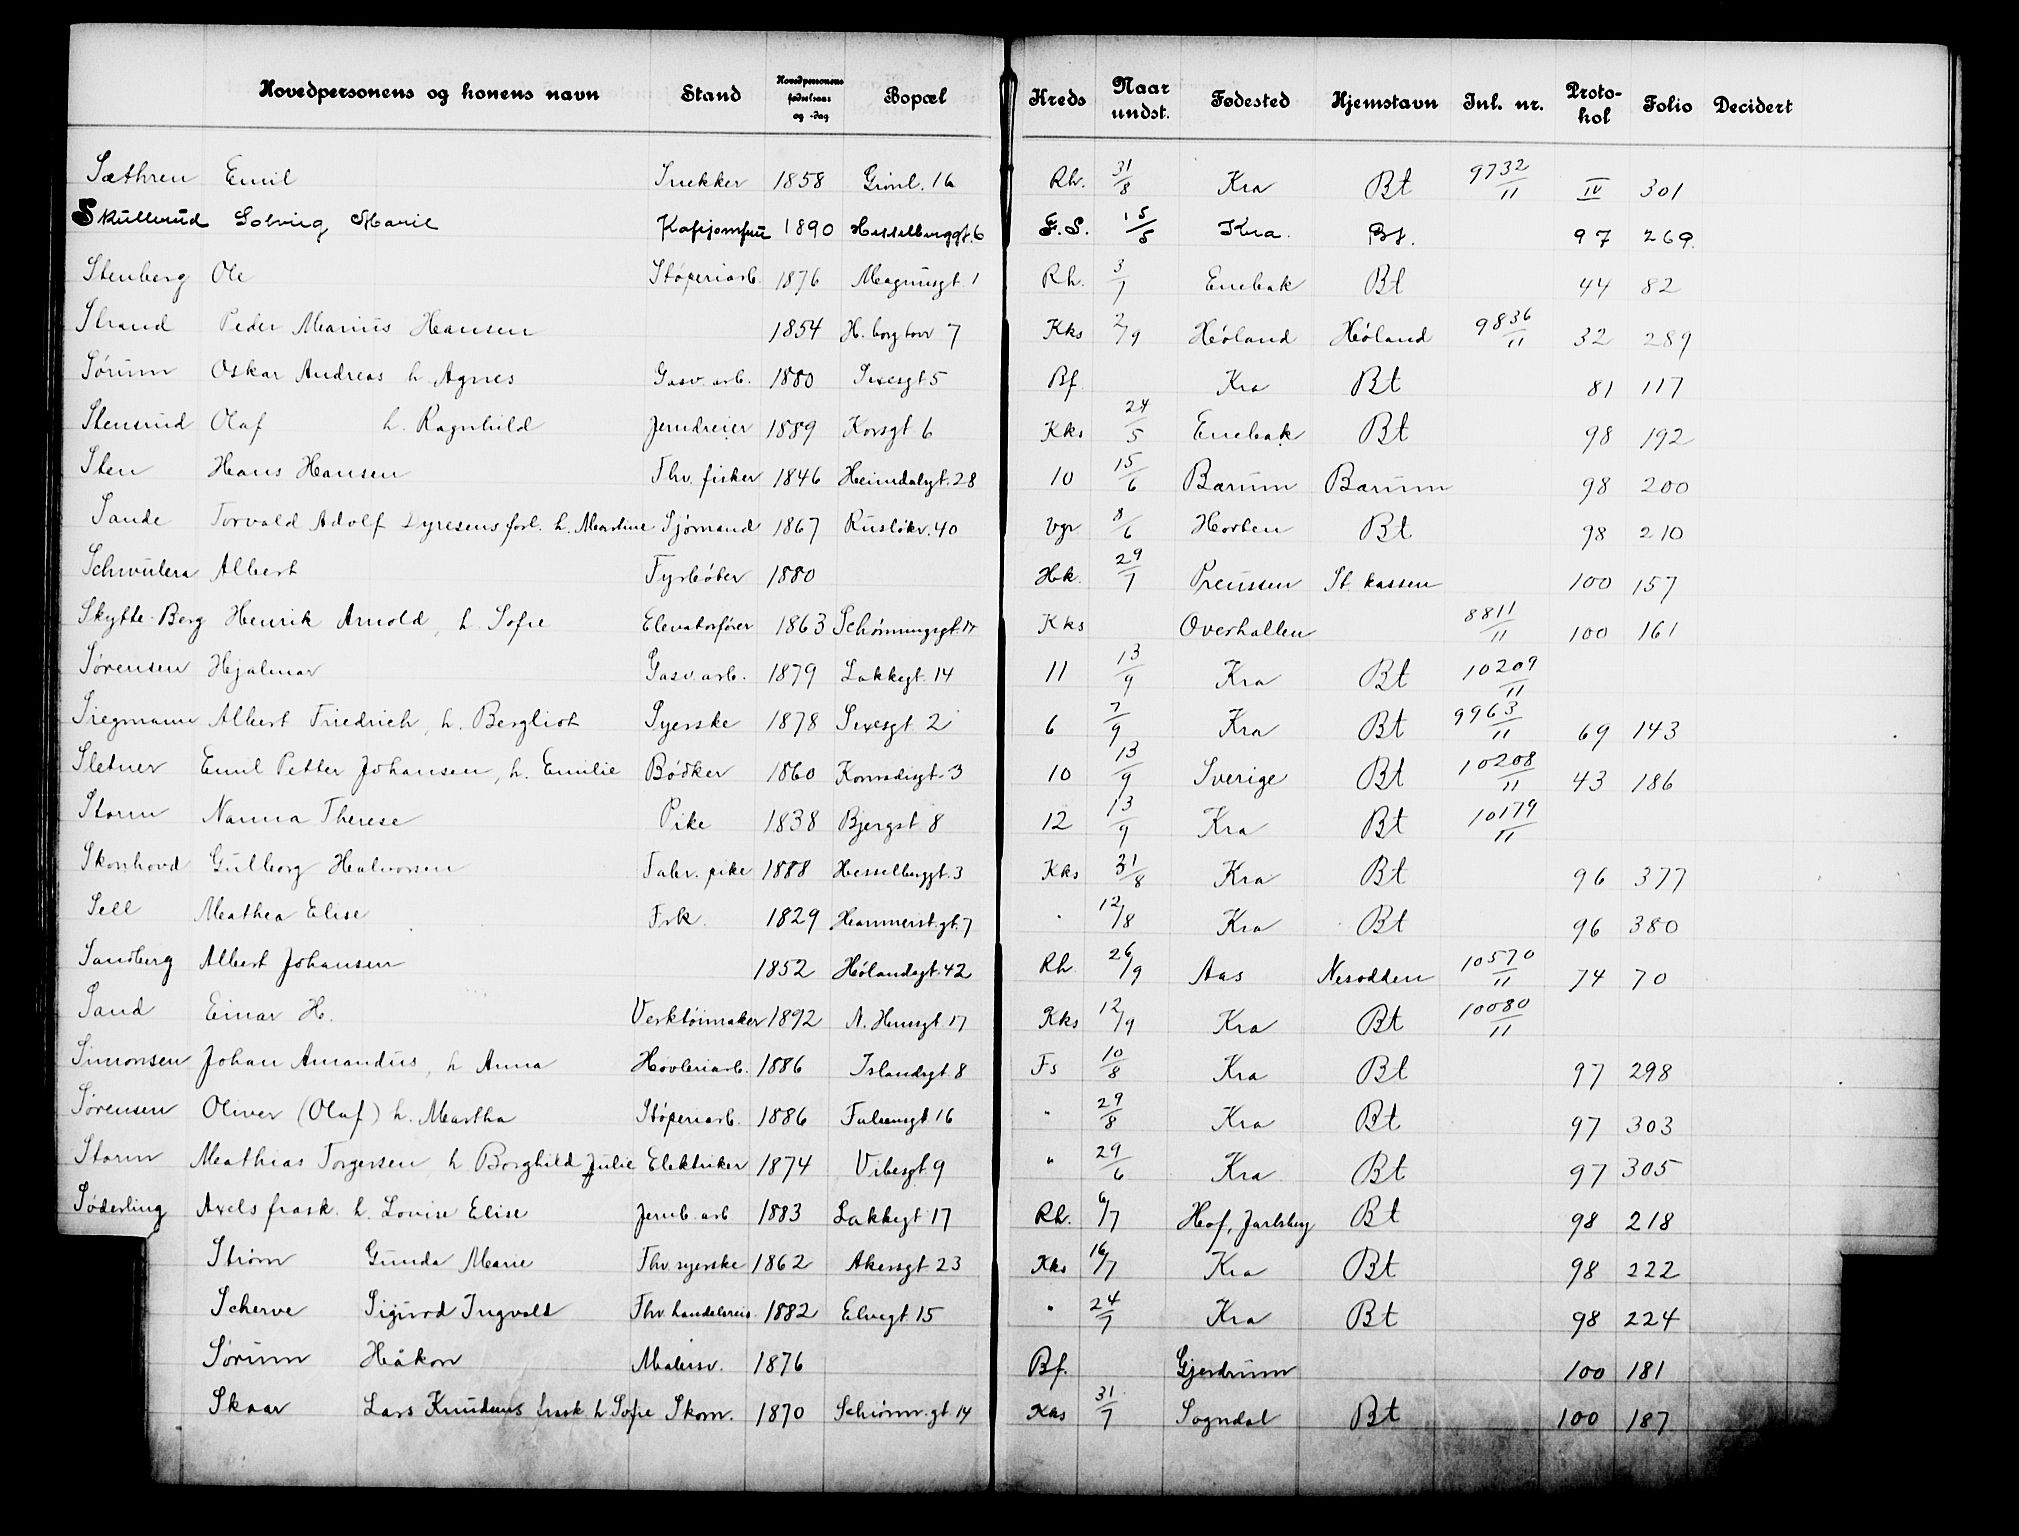 Hovedpersonens og konens navn Stand Hovedpersonens fødselsaar og -dag Bopæl Kreds Naar undst. Fødested Hjemstavn Inl. nr. Proto-kol Folio Decidert
Sæthren Emil Snekker 1858 Grønl. 16 Rh. 31/8 Kra Bt 9732/11 IV 301
Skullerud Solveig Marie Kafejomfru 1890 Hesselberggt. 6 F.S. 15/5 Kra. Bt. 97 269
Stenberg Ole Støperiarb. 1876 Magnusgt. 1 Rh. 3/7 Enebak Bt 44 82
Strand Peder Marius Hansen 1854 H. borg torv 7 Kks 2/9 Høland Høland 9836/11 32 289
Sørum Oskar Andreas h. Agnes Gasv. arb. 1880 Sexesgt 5 Bf Kra Bt 81 117
Stensrud Olaf h. Ragnhild Jerndreier 1889 Korsgt 6 Kks 24/5 Enebak Bt 98 192
Sten Hans Hansen Fhv. fisker 1846 Heimdalsgt. 28 10 15/6 Bærum Bærum 98 200
Sande Torvald Adolf Dyresens forl. h. Martine Sjømand 1867 Ruseløkv. 40 Vgr. 8/6 Horten Bt 98 210
Schwulera Albert Fyrbøter 1880 Hk. 29/7 Preussen St. kassen 100 157
Skytte-Berg Henrik Arnold, h. Sofie Elevatorfører 1863 Schønningsgt. 14 Kks Overhallen 8811/11 100 161
Sørensen Hjalmar Gasv. arb. 1879 Lakkegt. 14 11 13/9 Kra Bt 10209/11
Siegmann Albert Friedrich, h. Bergliot Syerske 1878 Sexesgt 2 6 7/9 Kra Bt 9963/11 69 143
Sletner Emil Petter Johansen, h. Emilie Bødker 1860 Konradisgt. 3 10 13/9 Sverige Bt 10208/11 43 186
Storm Nanna Therese Pike 1838 Bjergst 8 12 13/9 Kra Bt 10179/11
Skonhovd Gulborg Halvorsen Fabr. pike 1888 Hesselberggt. 3 Kks 31/8 Kra Bt 96 377
Sell Mathea Elise Frk. 1829 Hammerst.gt. 7 " 12/8 Kra Bt 96 380
Sandberg Albert Johansen 1852 Hølandsgt. 42 Rh. 26/9 Aas Nesodden 10570/11 74 70
Sand Einar H. Verktøimaker 1892 N. Hausgt. 17 Kks 12/9 Kra Bt 10080/11
Simonsen Johan Amandus, h Anna Høvleriarb. 1886 Islandsgt. 8 Fs 10/8 Kra Bt 97 298
Sørensen Oliver (Olaf) h. Martha Støperiarb. 1886 Falsensgt 16 " 29/8 Kra Bt 97 303
Storm Mathias Torgersen, h. Borghild Julie Elektriker 1874 Vibesgt 9 " 29/6 Kra Bt 97 305
Søderling Axels frask. h. Lovise Elise Jernb. arb 1883 Lakkegt 17 Rh. 6/7 Hof, Jarlsberg Bt 98 218
Strøm Gunda Marie Fhv. syerske 1862 Akersgt. 23 Kks 16/7 Kra Bt 98 222
Scherve Sigurd Ingvald Fhv. handelsreis. 1882 Elvegt 15 " 24/7 Kra Bt 98 224
Sørum Håkon Malersv. 1876 Bf. Gjerdrum 100 181
Skaar Lars Knudsens frask h. Sofie Skom. 1870 Schønn. gt 14 Kks 31/7 Sogndal Bt 100 187